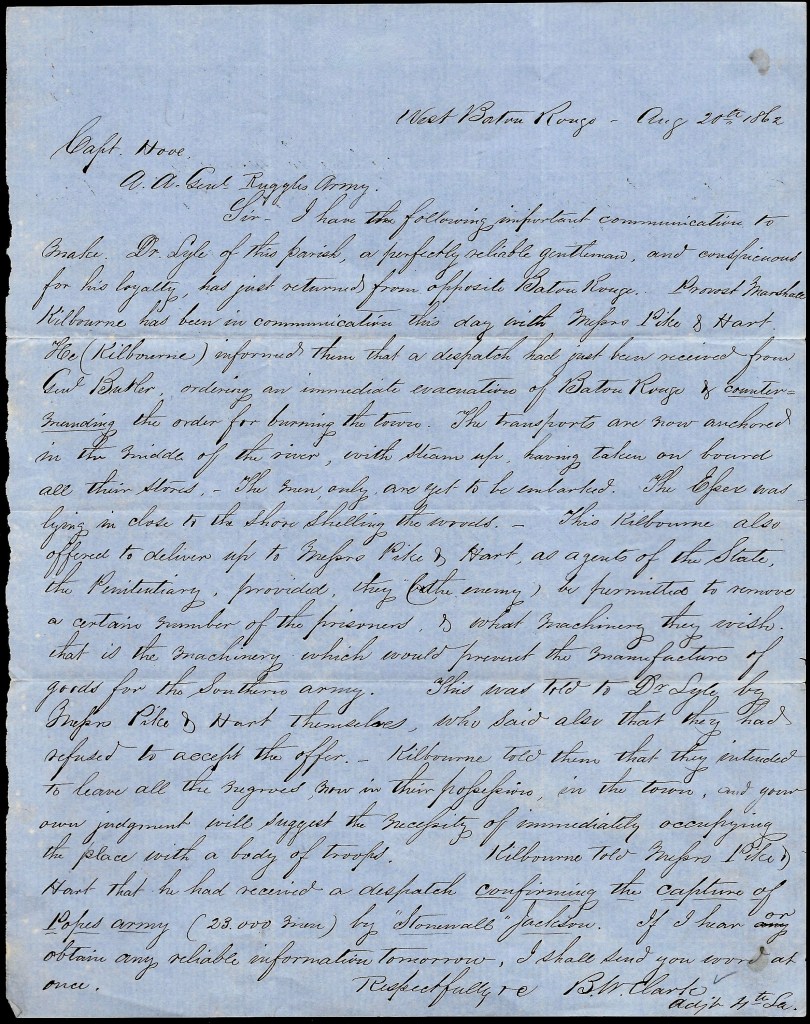 West Baton Rouge - Aug 20th 1862
Capt. Hove.
A. A. Genl Ruggles Army.
Sir - I have the following important communication to
make. Dr. Lyle of this parish, a perfectly reliable gentleman, and conspicuous
for his loyalty, has just returned from opposite Baton Rouge. Provost Marshall
Kilbourne has been in communication this day with Messrs Pike & Hart.
He (Kilbourne) informed them that a despatch had just been received from
Genl Butler, ordering an immediate evacuation of Baton Rouge & counter=
manding the order for burning the town. The transports are now anchored
in the middle of the river, with steam up, having taken on board
all their stores. - The men, only, are yet to be embarked. The Essex was
lying in close to the shore shelling the woods. - This Kilbourne also
offered to deliver up to Messrs Pike & Hart, as agents of the State,
the Penitentiary, provided, they (the enemy) be permitted to remove
a certain number of the prisoners, & what machinery they wish.
that is the machinery which would prevent the manufacture of
goods for the Southern army. This was told to Dr Lyle, by
Messrs Pike & Hart themselves, who said also that they had
refused to accept the offer. - Kilbourne told them that they intended
to leave all the negroes, now in their possession, in the town, and your
own judgment will suggest the necessity of immediately occupying
the place with a body of troops. Kilbourne told Messrs Pike &
Hart that he had received a despatch confirming the capture of
Popes army (23.000 men) by "Stonewall" Jackson. If I hear any or
obtain any reliable information tomorrow, I shall send you word at
once. Respectfully &c B. W. Clark
Adjt 4th La.